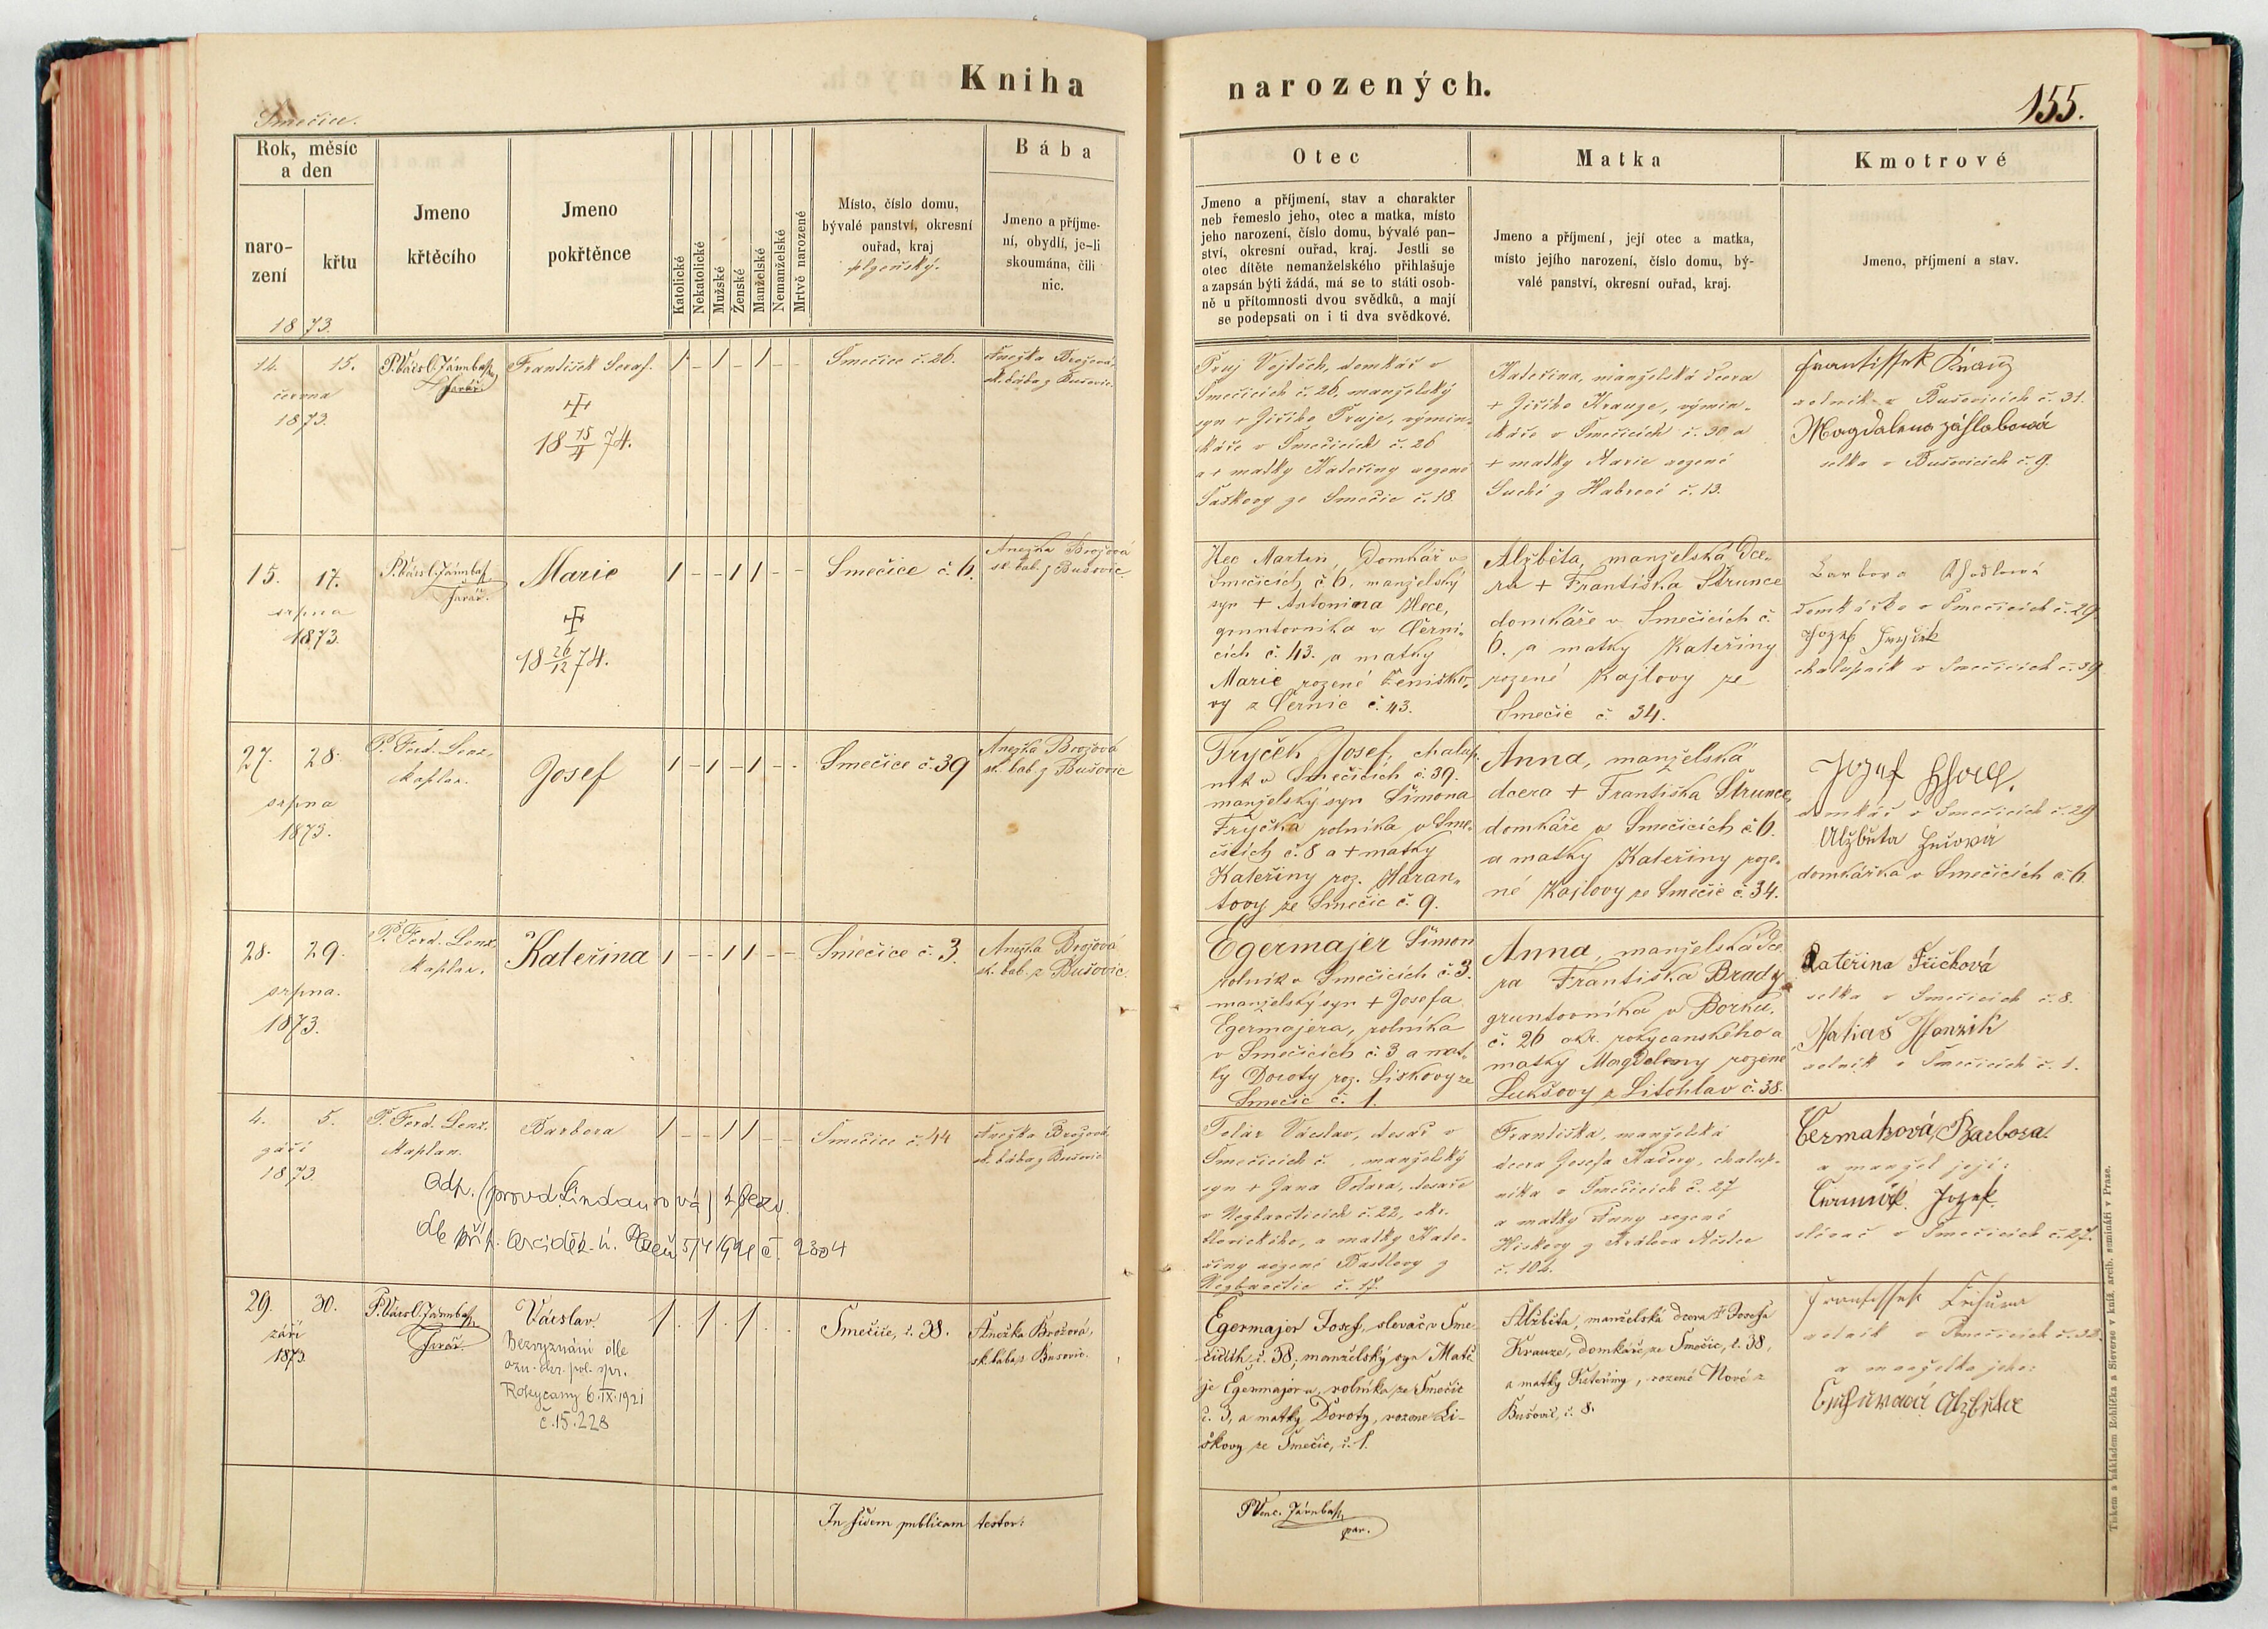 Kniha
narozených.
155.
Smečice.
Rok, měsíc
a den
naro-
zení
křtu
1873.
Jmeno
křtěcího
Jmeno
pokřtěnce
Katolické
Nekatolické
Mužské
Ženské
Manželské
Nemanželské
Mrtvě narozené
Místo, číslo domu,
bývalé panství, okresní
ouřad, kraj
plzeňský.
Bába
Jmeno a příjme-
ní, obydlí, je-li
skoumána, čili
nic.
Otec
Jmeno a příjmení, stav a charakter
neb řemeslo jeho, otec a matka, místo
jeho narození, číslo domu, bývalé pan-
ství, okresní ouřad, kraj. Jestli se
otec dítěte nemanželského přihlašuje
a zapsán býti žádá, má se to státi osob-
ně u přítomnosti dvou svědků, a mají
se podepsati on i ti dva svědkové.
Matka
Jmeno a příjmení, její otec a matka,
místo jejího narození, číslo domu, bý-
valé panství, okresní ouřad, kraj.
Kmotrové
Jmeno, příjmení a stav.
14. 15.
června
1873.
farář.
František Seraf.
18 15/4 74.
Smečice č. 26.
Anežka Brožová,
sk. bába z Bušovic.
Pruj Vojtěch, domkář v
Smečicích č. 26, manželský
syn + Jiřího Pruje, výmin-
káře v Smečicích č. 26
a + matky Kateřiny rozené
ze Smečic č. 18.
Kateřina, manželská dcera
+ Jiřího Krauze, výmin-
káře v Smečicích č. 30 a
+ matky Marie rozené
Suché z Habrové č. 13.
Frantissek
rolník v Bušovicích č. 31.
Magdalena
selka v Bušovicích č. 9.
15. 17.
srpna
1873.
farář.
Marie
18 26/12 74.
Smečice č. 6.
Anežka Brožová
sk. bab. z Bušovic.
Hec Martin, domkář v
Smečicích č. 6. manželský
syn + Antonína Hece,
gruntovníka v Černi-
cích č. 43. a matky
Marie rozené
vy z Černic č. 43.
Alžběta, manželská dce-
ra + Františka Štrunce
domkáře v Smečicích č.
6. a matky Kateřiny
rozené Kajlovy ze
Smečic č. 34.
Barbora
domkářka v Smečicích č. 29
Jozef
chalupník v Smečicích č. 39
27. 28.
srpna
1873.
P. Ferd. Lenz,
kaplan.
Josef
Smečice č. 39
Anežka Brožová
sk. bab. z Bušovic
Fryček Josef, chalup-
ník v Smečicích č. 39.
manželský syn Šimona
Fryčka rolníka v Sme-
čicích č. 8 a + matky
Kateřiny roz. Haran-
tovy ze Smečic č. 9.
Anna, manželská
dcera + Františka Štrunce,
domkáře v Smečicích č. 6.
a matky Kateřiny roze-
né Kajlovy ze Smečic č. 34.
Jozef
domkář v Smečicích č. 29
Alžběta
domkářka v Smečicích č. 6.
28. 29.
srpna.
1873.
P. Ferd. Lenz,
kaplan.
Kateřina
Smečice č. 3.
Anežka Brožová
sk. bab. z Bušovic.
Egermajer Šimon
rolník v Smečicích č. 3.
manželský syn + Josefa
Egermajera, rolníka
v Smečicích č. 3 a mat-
ky Doroty roz. Liškovy ze
Smečic č. 1.
Anna, manželská dce
ra Františka Brady,
gruntovníka v Borku,
č. 26 okr. rokycanského a
matky Magdaleny rozené
Lukšovy z Litohlav č. 38.
Kateřina
selka v Smečicích č. 8.
Matiaš Honzik
rolník v Smečicích č. 1.
4. 5.
září
1873.
P. Ferd. Lenz.
kaplan.
Barbora
Smečice č. 44
Anežka Brožová,
sk. bába z Bušovic
odp. (provd. Lindaurová) z bezv.
dle příp. arciděk. ú. Plzeň 5/4 1921 č. 2304
Tolar Václav, tesař v
Smečicích č. , manželský
syn + Jana Tolara, tesaře
v č. 22, okr.
blovického, a matky Kate-
řiny rozené z
č. 17.
Františka, manželská
dcera Josefa Kadery, chalup-
níka v Smečicích č. 27
a matky Anny rozené
z Králova Městce
č. 102.
Čermaková, Barbora.
a manžel její:
Čermák. Jozef.
slévač v Smečicích č. 27.
29. 30.
září
1873.
farář.
Václav.
Bezvyznání dle
ozn. okr. pol. spr.
Rokycany 6.IX.1921
č. 15.228
Smečice, č. 38.
Anežka Brožová,
sk. bába z Bušovic.
Egermajer Josef, slevač v Sme-
čicích, č. 38; manželský syn Matě
je Egermajera, rolníka ze Smečic
č. 3, a matky Doroty, rozené Li-
škovy ze Smečic, č. 1.
Alžběta, manželská dcera + Josefa
Krauze, domkáře ze Smečic, č. 38,
a matky Kateřiny, rozené Nové z
Bušovic, č. 8.
Frantissek
rolník v Smečicích č. 32.
a manželka jeho:
Alžběta
In fidem publicam testor:
P Venc.
par.
Tiskem a nákladem Rohlíčka a Sieverse v kníž. arcib. semináři v Praze.